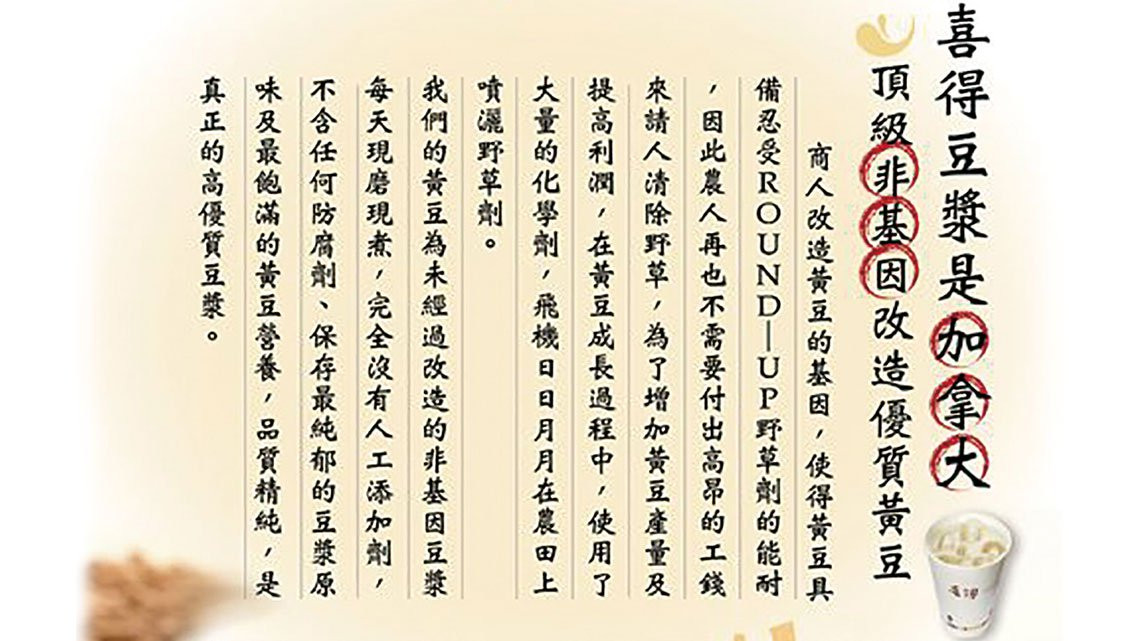 喜得豆漿是加拿大
頂級非基因改造優質黃豆
商人改造黃豆的基因，使得黃豆具
備忍受ROUND—UP野草劑的能耐
，因此農人再也不需要付出高昂的工錢
來請人清除野草，為了增加黃豆產量及
提高利潤，在黃豆成長過程中，使用了
大量的化學劑，飛機日日月月在農田上
噴灑野草劑。
我們的黃豆為未經過改造的非基因豆漿
每天現磨現煮，完全沒有人工添加劑，
不含任何防腐劑、保存最純郁的豆漿原
味及最飽滿的黃豆營養，品質精純，是
真正的高優質豆漿。